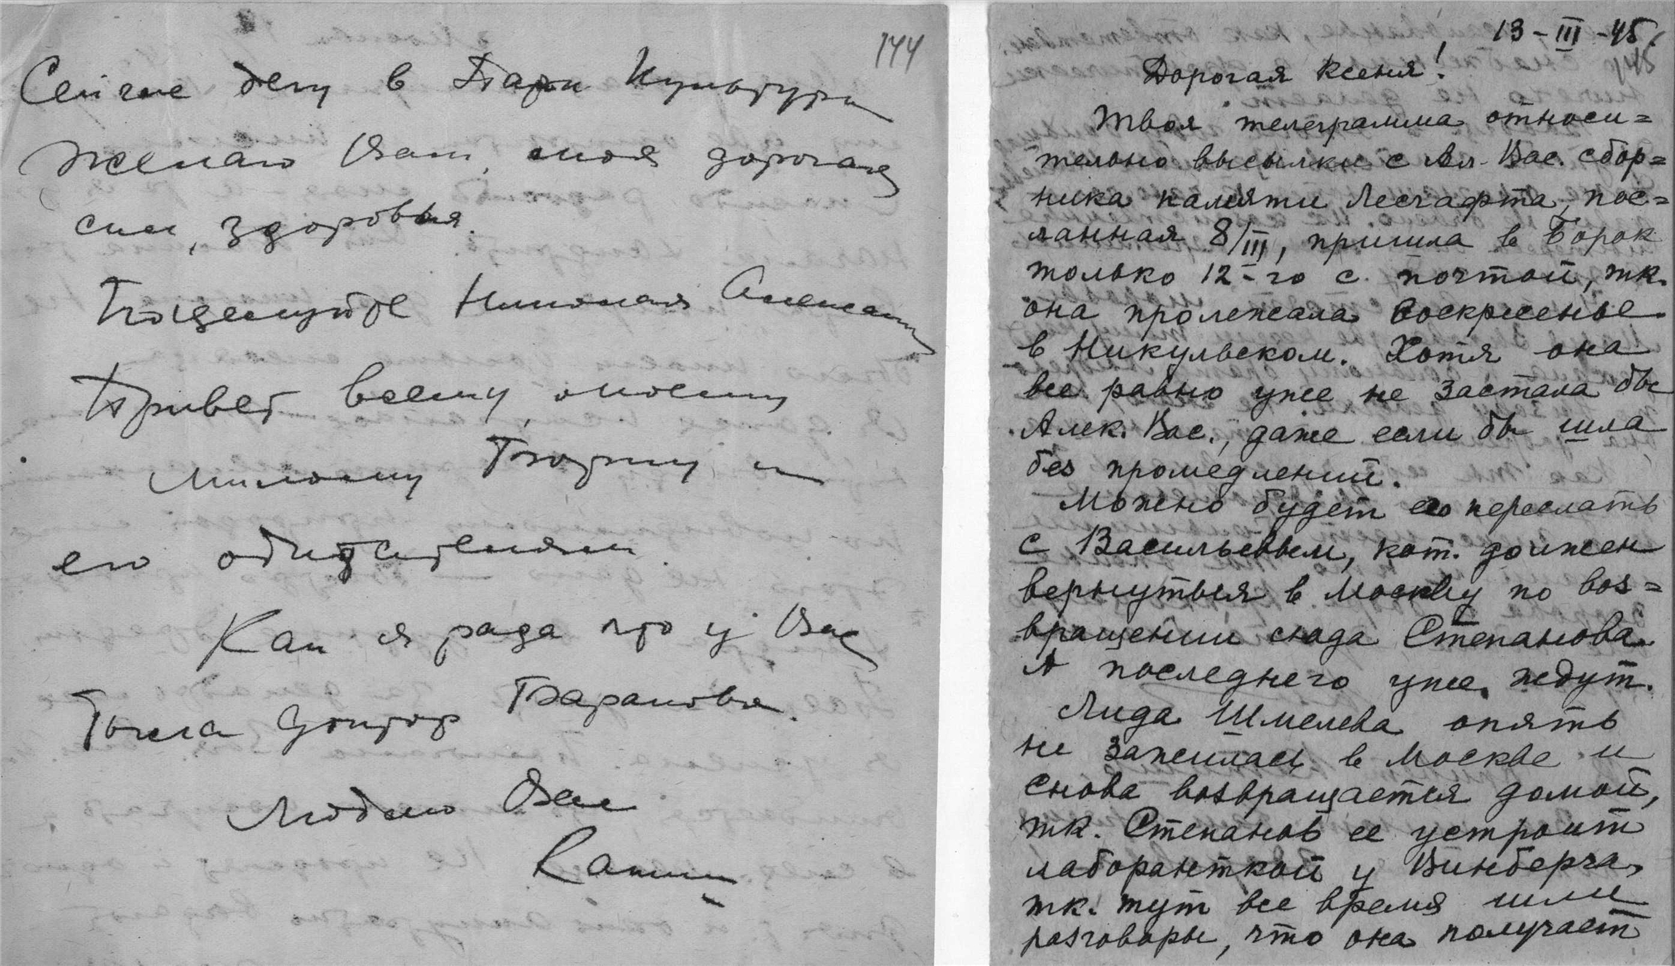 144
Сейчас бегу в Парк Культуры
Желаю Вам, моя дорогая
сил, здоровья.
Поцелуйте Николая Алексан
Привет всему, моему
милому Борку и
его обитателям.
Как я рада что у Вас
была доктор Баранова.
Люблю Вас
13-III-45.
145
Дорогая Ксения!
Твоя телеграмма относи=
тельно высылки с Ал. Вас. сбор=
ника памяти Лесгафта, пос=
ланная 8/III, пришла в Борок
только 12-го с почтой, тк.
она пролежала воскресенье
в Никульском. Хотя она
все равно уже не застала бы
Алек. Вас., даже если бы шла
без промедлений.
Можно будет его переслать
с Васильевым, кот. должен
вернуться в Москву по воз=
вращении сюда Степанова.
А последнего уже ждут.
Лида Шмелева опять
не зажилась в Москве и
снова возвращается домой,
тк. Степанов ее устроит
лаборанткой у Винберга,
тк. тут все время шли
разговоры, что она получает